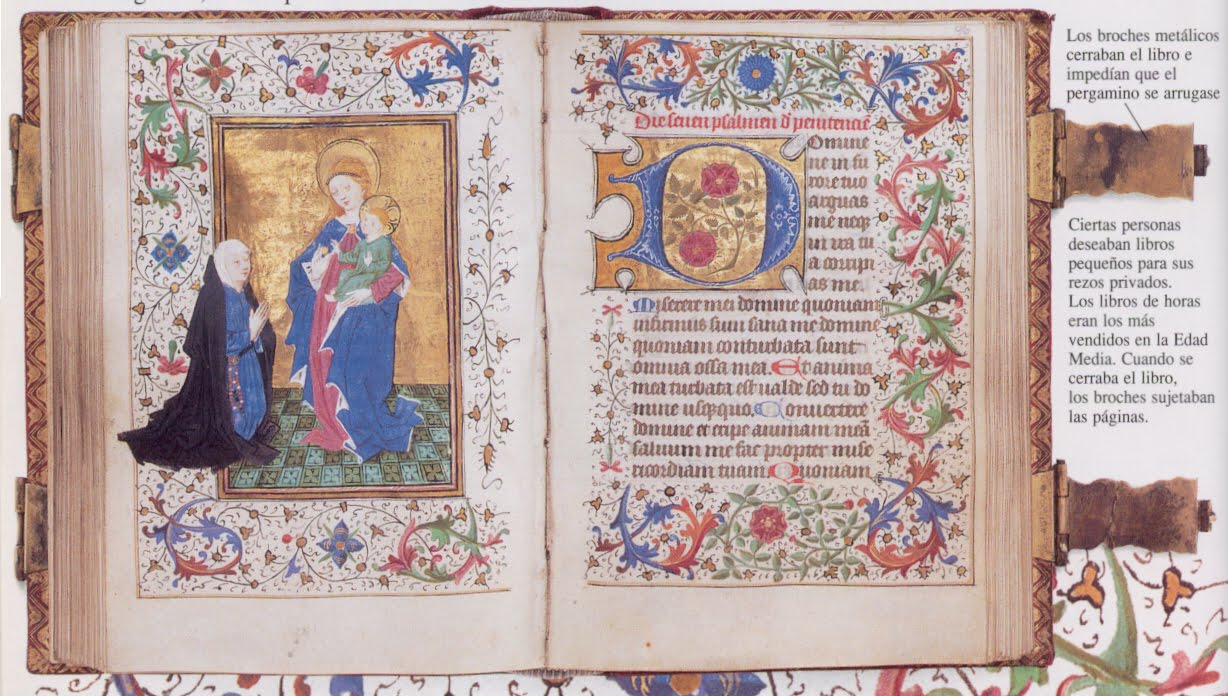 Die seuen psalmen d penitencie
Domine
ne in fu
rore tuo
arguas
me neq
in ira tu
a corripi
as me.
Miserere mei domine quoniam
infirmus sum sana me domine
quoniam conturbata sunt
omnia ossa mea. Et anima
mea turbata est ualde sed tu do
mine usqquo. Conuertere
domine et eripe animam meā
saluum me fac propter mise
ricordiam tuam Quoniam
Los broches metálicos
cerraban el libro e
impedían que el
pergamino se arrugase
Ciertas personas
deseaban libros
pequeños para sus
rezos privados.
Los libros de horas
eran los más
vendidos en la Edad
Media. Cuando se
cerraba el libro,
los broches sujetaban
las páginas.